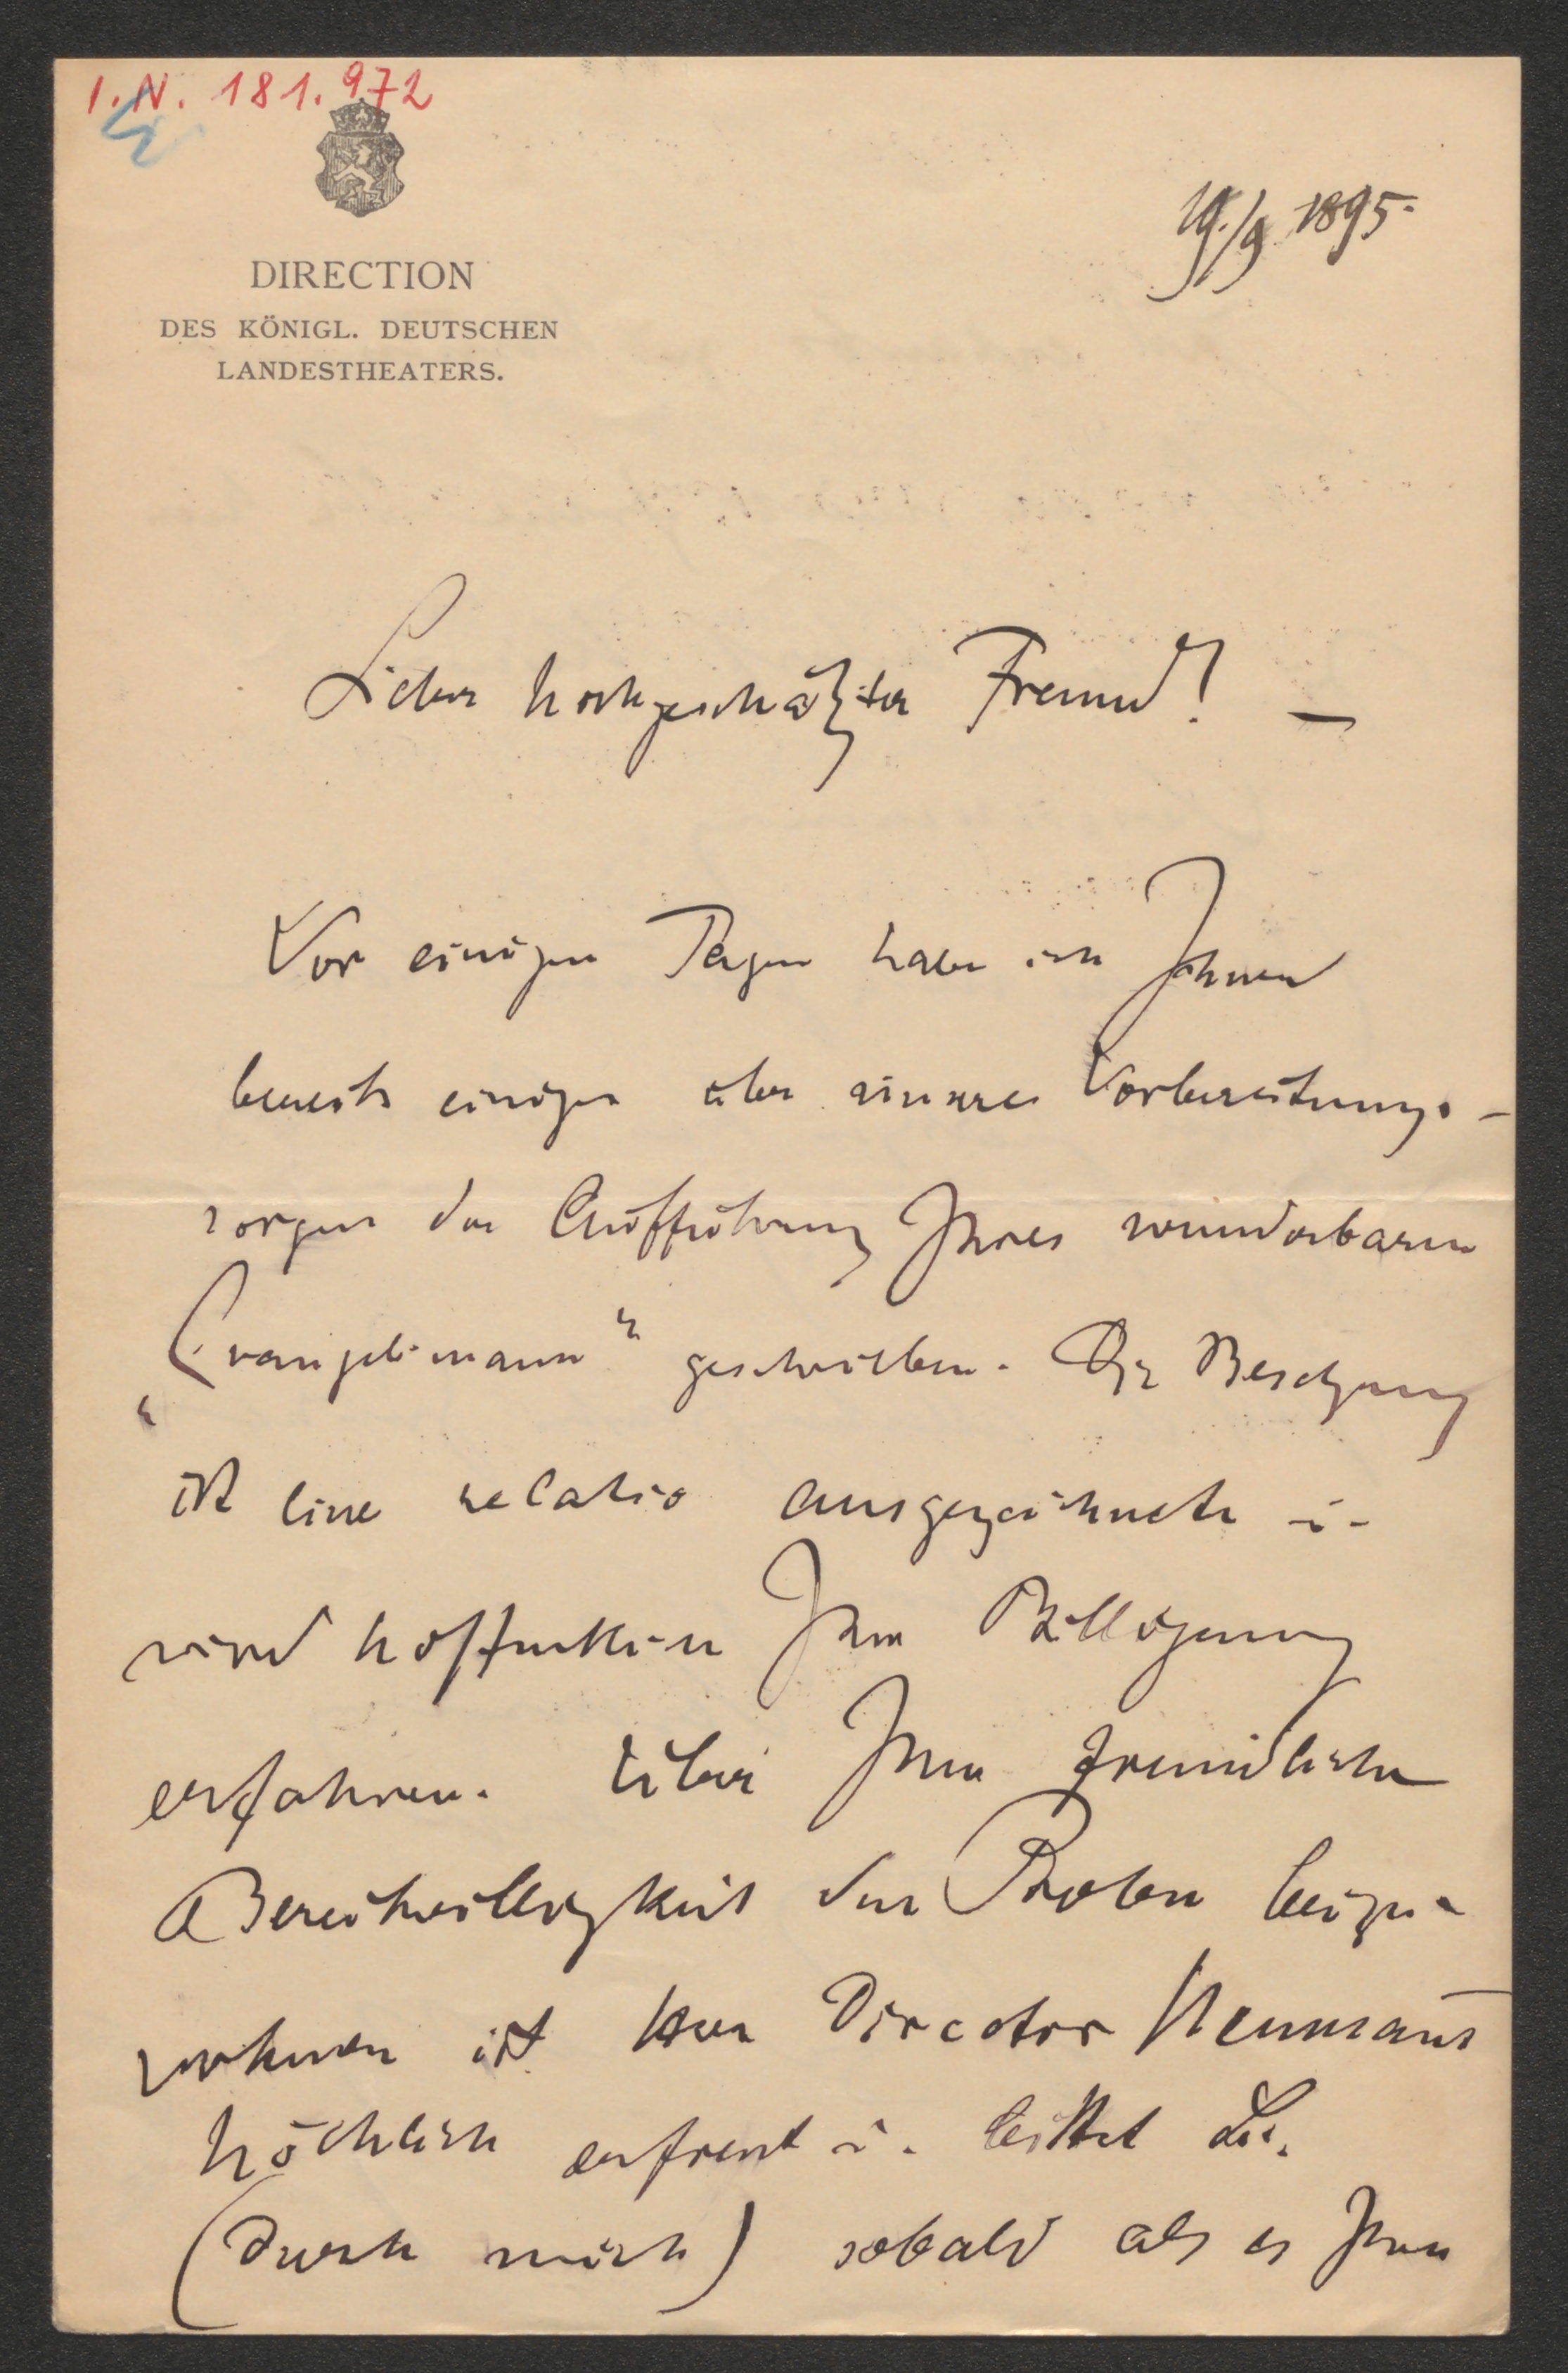 I. N. 181.972
DIRECTION
DES KÖNIGL. DEUTSCHEN
LANDESTHEATERS.
19./9. 1895.
Lieber hochgeschätzter Freund! —
Vor einigen Tagen habe ich Ihnen
bereits einiges über unsere Vorbereitungs-
sorgen der Aufführung Ihres wunderbaren
„Evangelimann“ geschrieben. Die Besetzung
ist eine relativ ausgezeichnete u.
wird hoffentlich Ihre Billigung
erfahren. Über Ihre freundliche
Bereitwilligkeit den Proben beizu-
wohnen ist Herr Director Neumann
höchlich erfreut u. bittet Sie,
(durch mich) sobald als es Ihnen